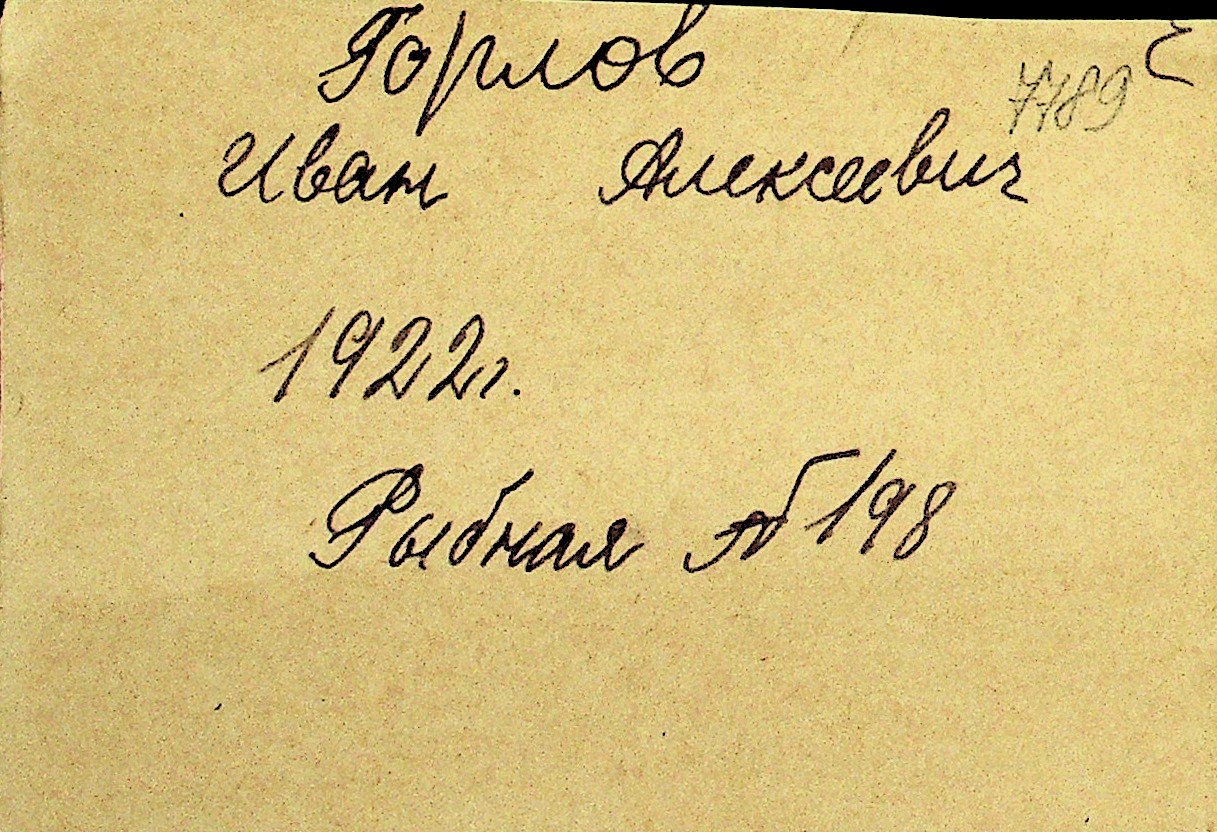 Горлов
7789
Иван Алексеевич
1922г.
Рыбная № 198